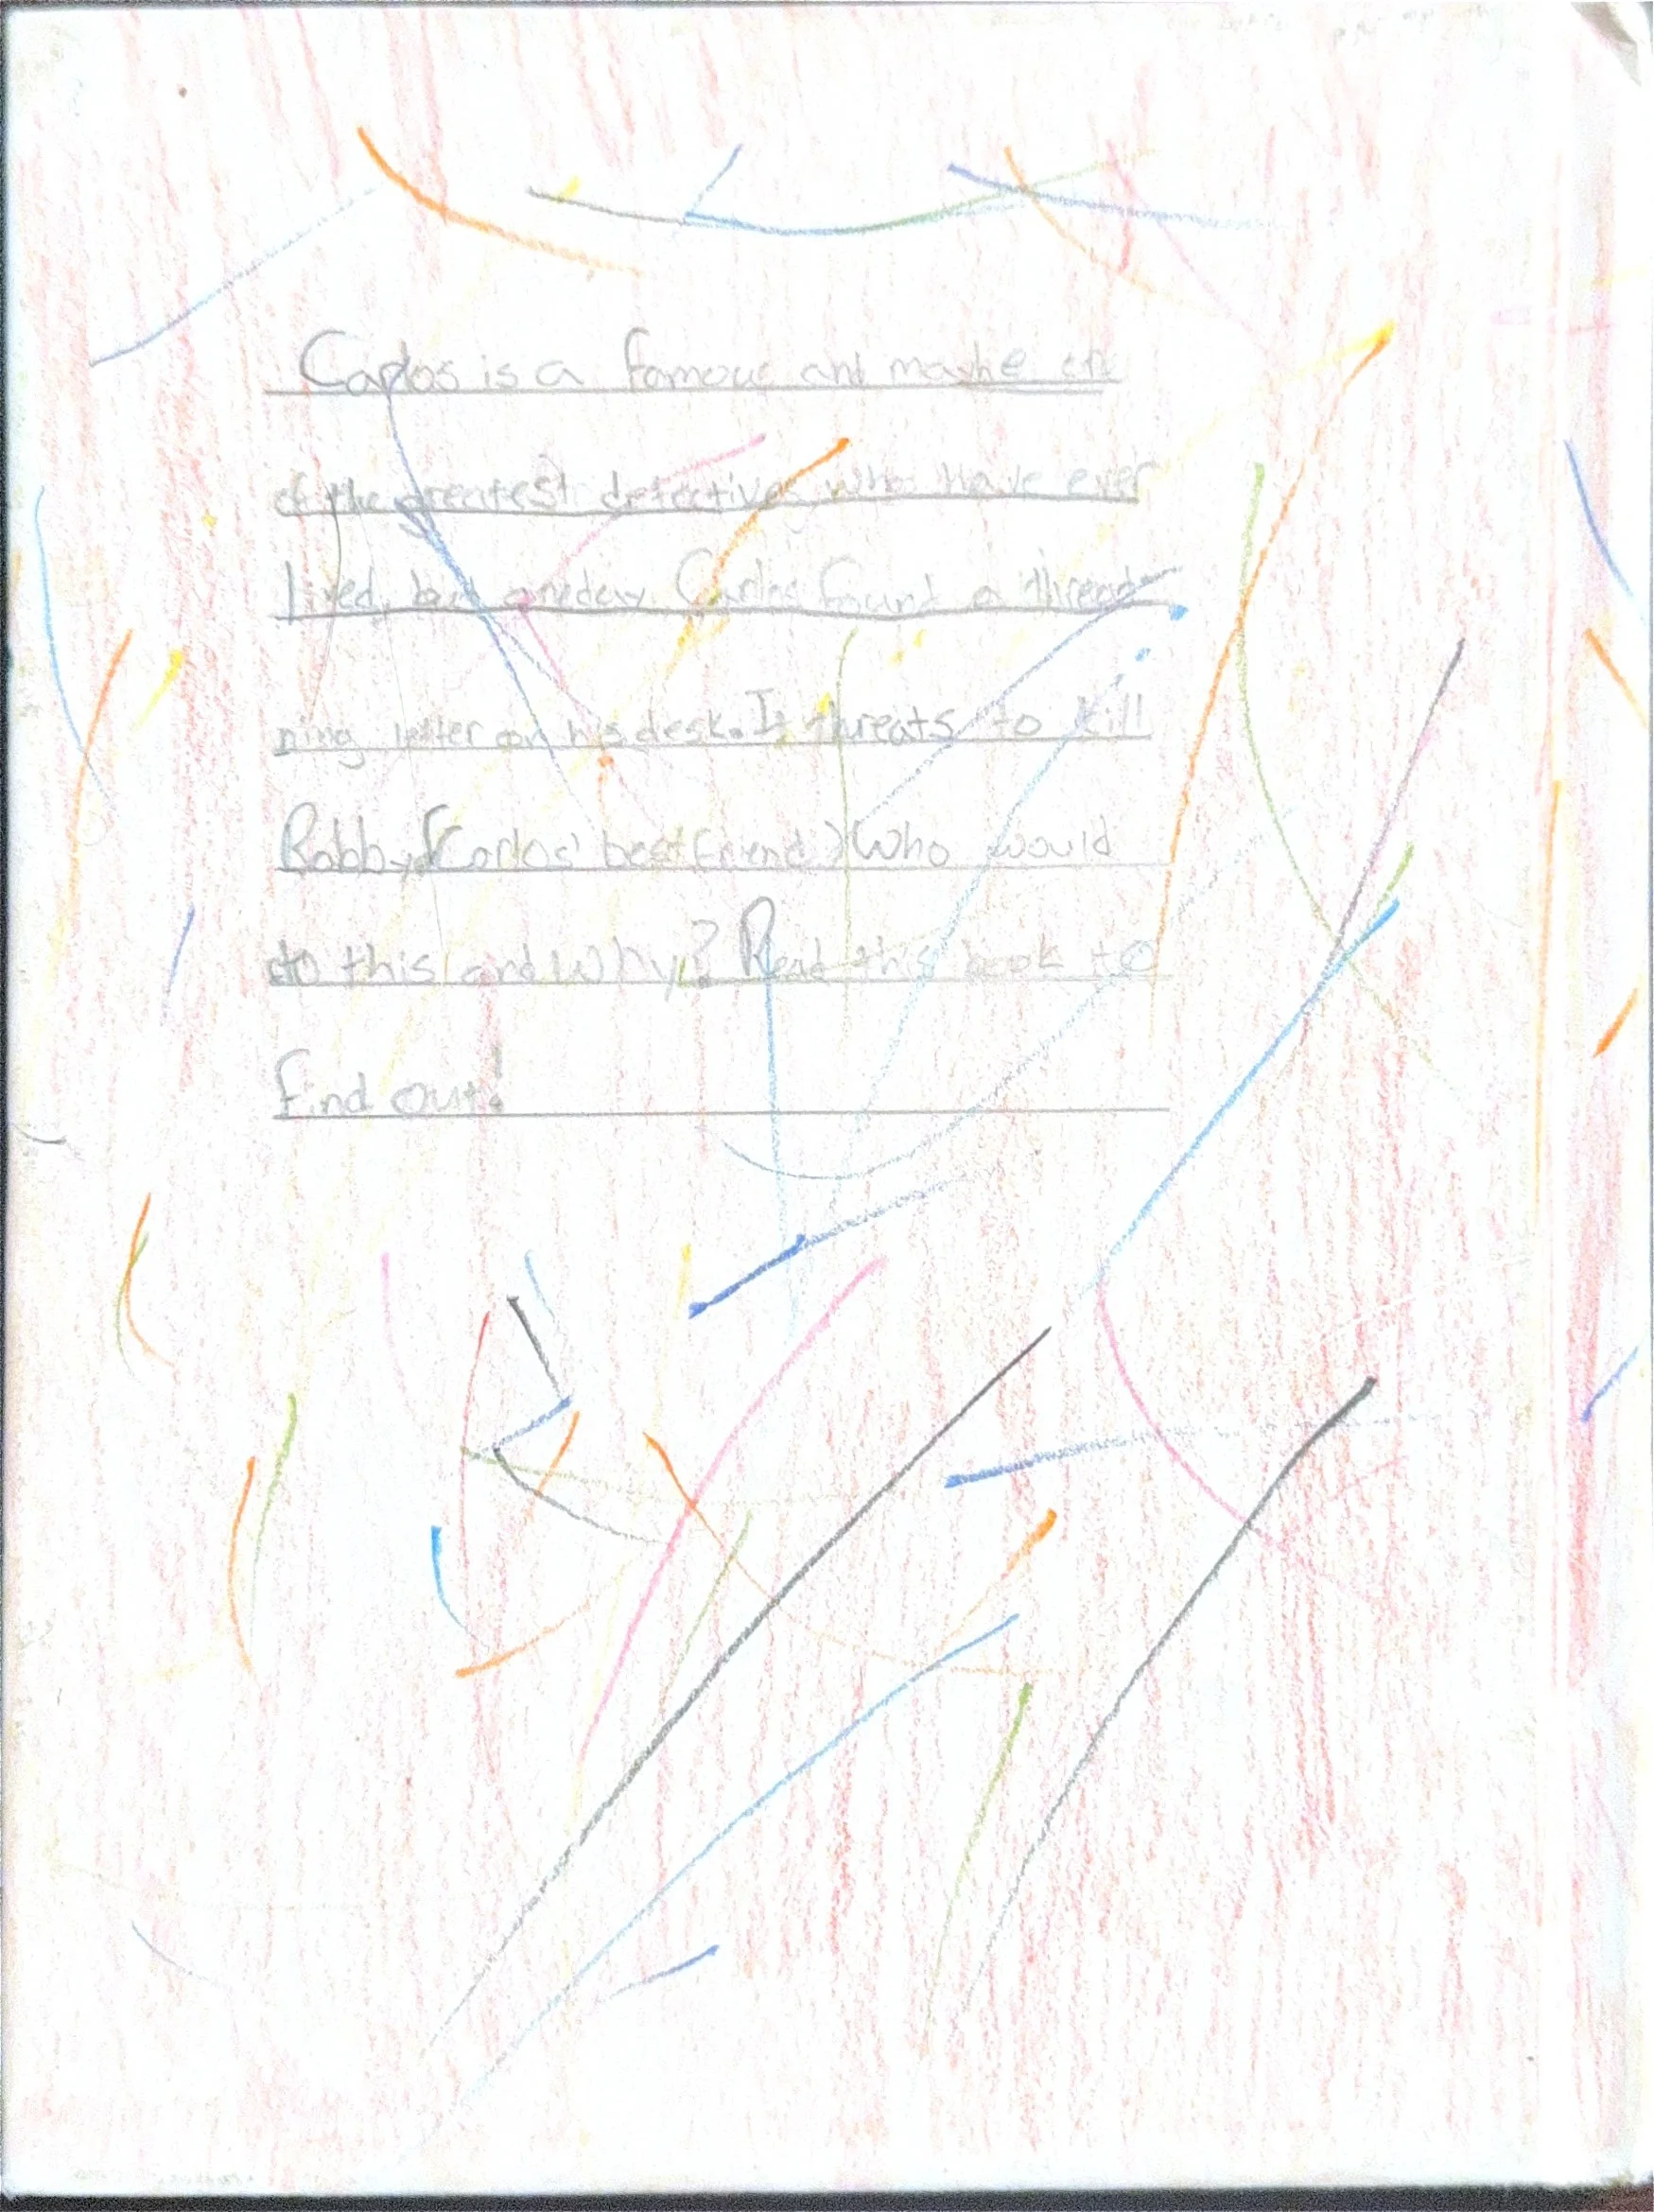 Carlos is a famous and maybe on
of the greatest detectives who have ever
lived, but oneday Carlos found a thread
ning letter on his desk. It threats to kill
Robby (Carlos' best friend) Who would
do this and why? Read this book to
find out!